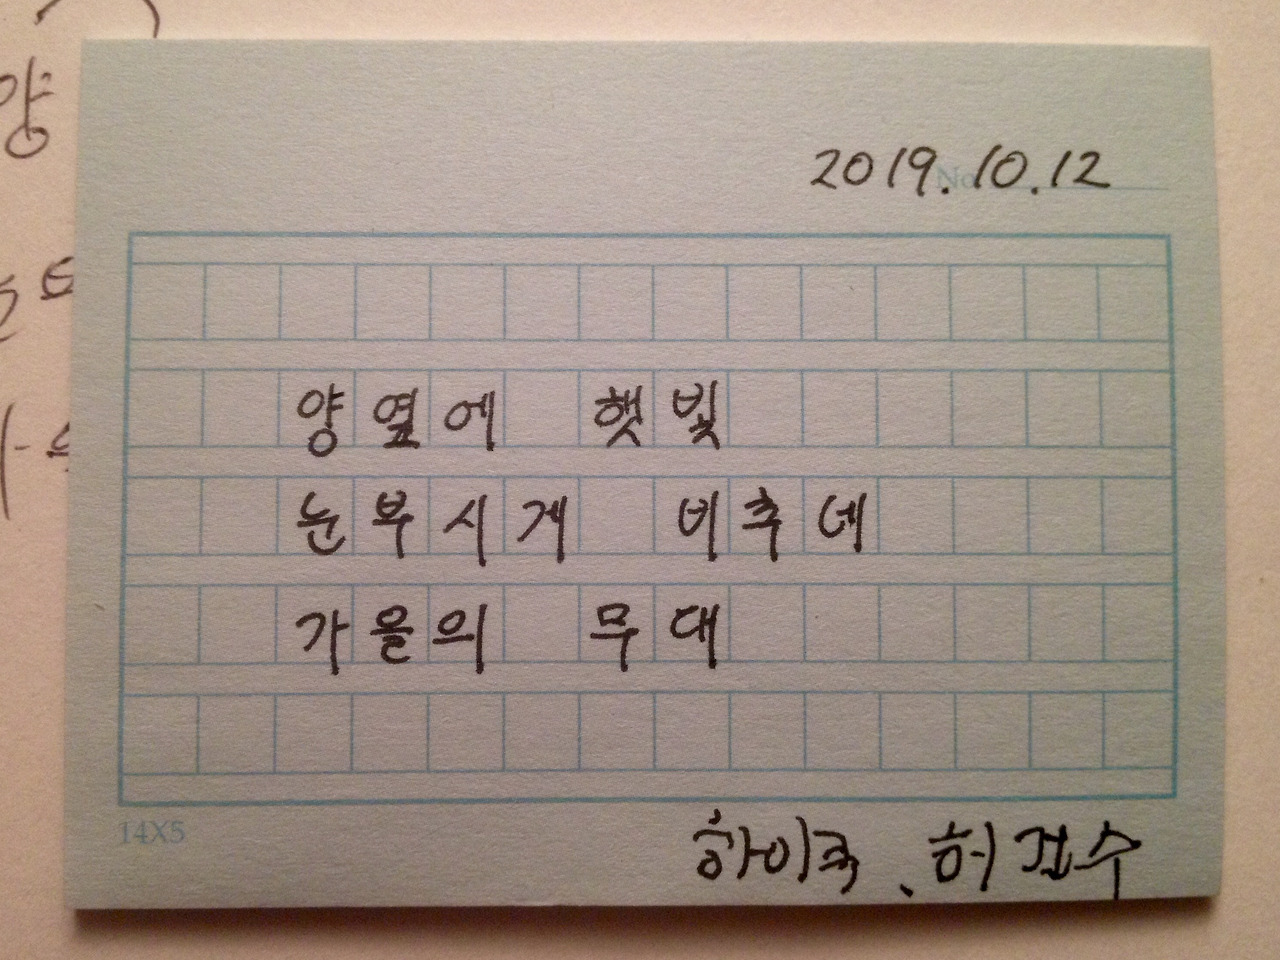 2019.10.12
No.
양옆에 햇빛
눈부시게 비추네
가을의 무대
14X5
하이쿠. 허검수
양